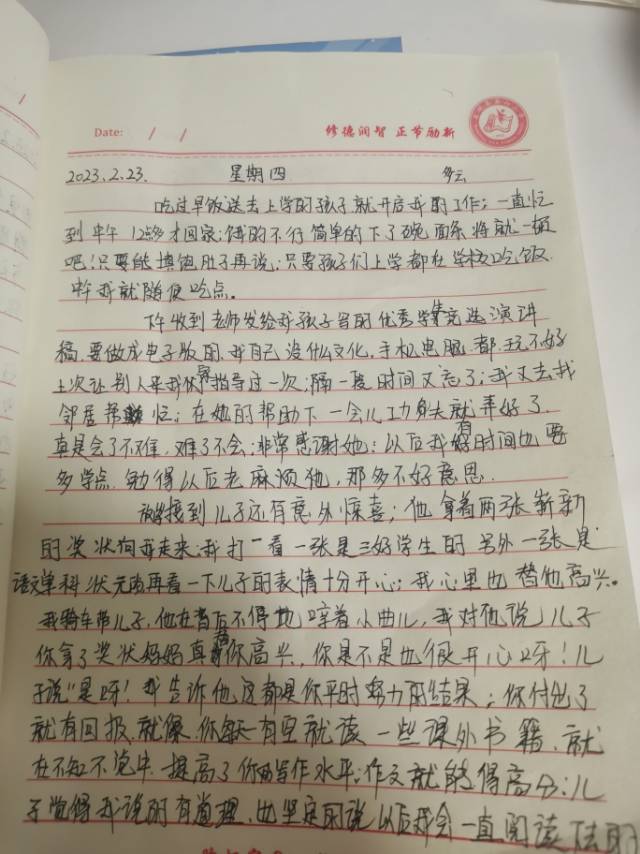 Date: / /
修德润智 正节励新
2023.2.23. 星期四 多云
吃过早饭送去上学的孩子就开启我的工作；一直忙
到中午12点多才回家；饿的不行简单的下了碗面条将就一顿
吧！只要能填饱肚子再说；只要孩子们上学都在学校吃饭
中午我就随便吃点。
下午收到老师发给我孩子写的优秀学生竞选演讲
稿，要做成电子版的，我自己没什么文化，手机电脑都玩不好
上次让别人来我家指导过一次；隔一段时间又忘了；我又去找
邻居帮忙；在她的帮助下一会儿功夫就弄好了
真是会了不难，难了不会；非常感谢她；以后我有时间也要
多学点，免得以后老麻烦他，那多不好意思．
放学接到儿子还有意外惊喜；他拿着两张崭新
的奖状向我走来，我打一看一张是三好学生的另外一张是
语文单科状元的再看一下儿子的表情十分开心；我心里也替他高兴．
我骑车带儿子，他在背后不停地哼着小曲儿，我对他说儿子
你拿了奖状妈妈真替你高兴，你是不是也很开心呀！儿
子说"是呀！我告诉他这都是你平时努力的结果；你付出了
就有回报，就像你每天有空就读一些课外书籍，就
在不知不觉中提高了你的写作水平；作文就能得高分；儿
子觉得我说的有道理，也坚定的说以后我会一直阅读